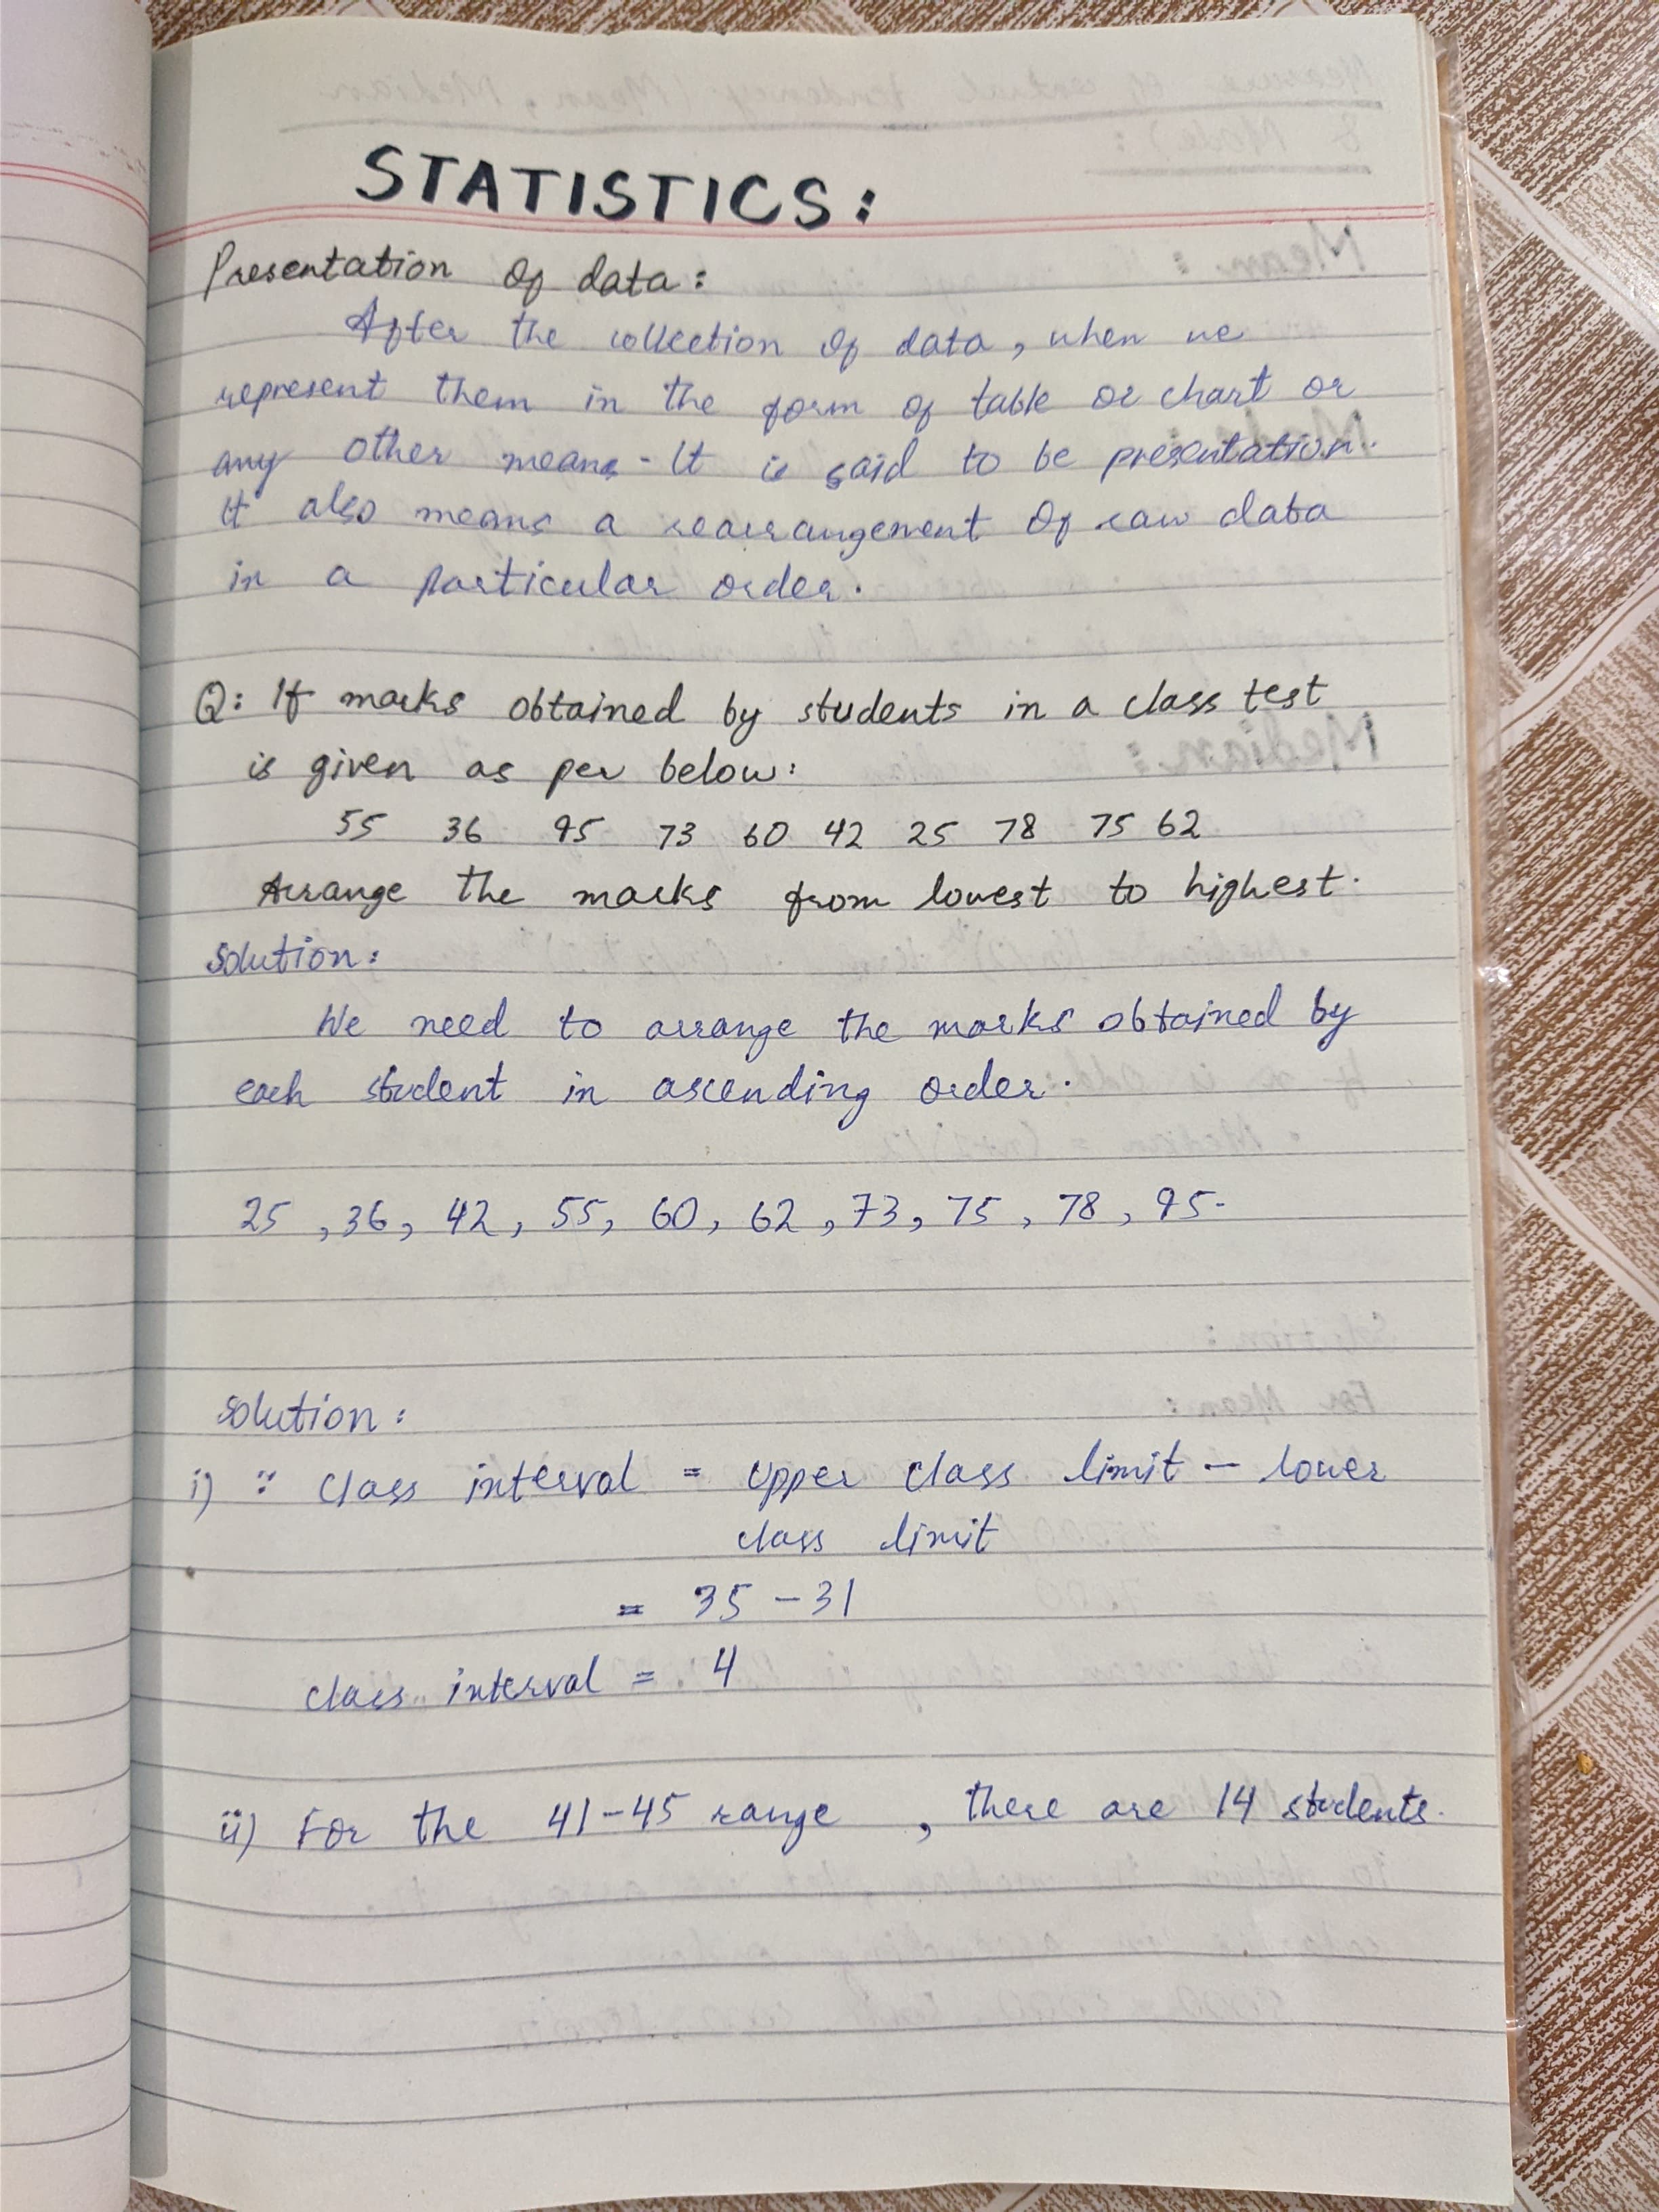 STATISTICS:
Presentation Of data:
After the collection Of data, when we
represent them in the form of table or chart or
any other means. It is said to be presentation.
It also means a rearrangement Of raw data
in a particular order.
Q: If marks obtained by students in a class test
is given as per below:
55 36 95 73 60 42 25 78 75 62
Arrange the marks from lowest to highest.
Solution:
We need to arrange the marks obtained by
each student in ascending order.
25, 36, 42, 55, 60, 62, 73, 75, 78, 95.
Solution:
i) ∵ Class interval = Upper Class limit - lower
class limit
= 35 - 31
class interval = 4
ii) For the 41-45 range, there are 14 students.